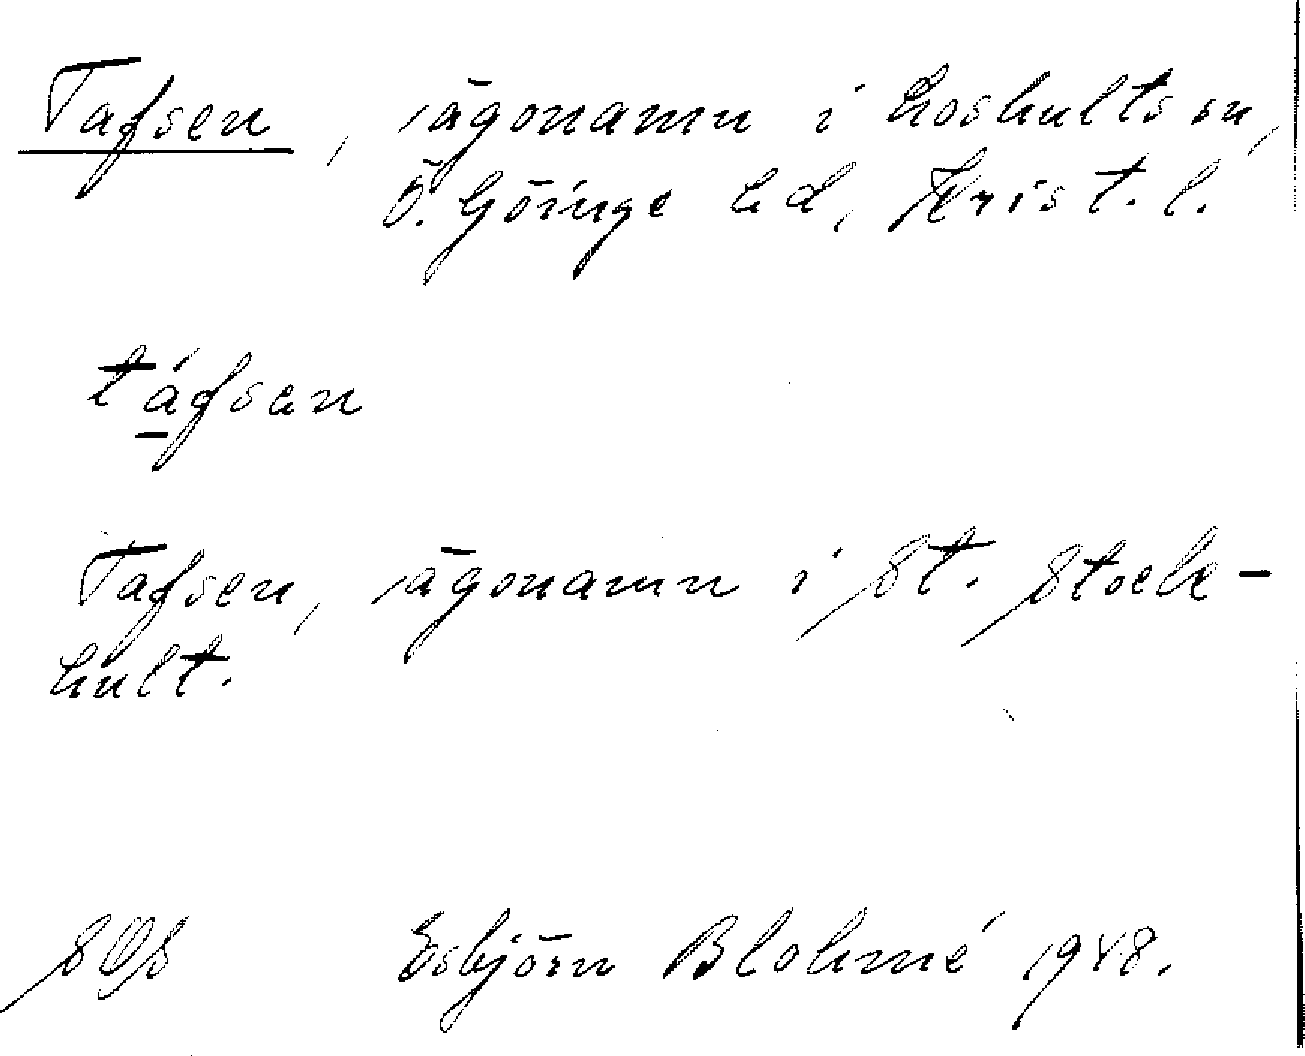 Tafsen, ägonamn i Loshults sn,
Ö. Göinge hd, Krist. l.
táfsen
Tafsen, ägonamn i St. Stock-
hult.
SOS Esbjörn Blohmé 1948.